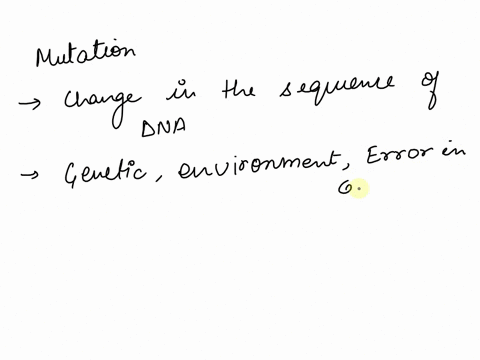 Mutation
→ Change in the sequence of
DNA
→ Genetic, environment, Error in